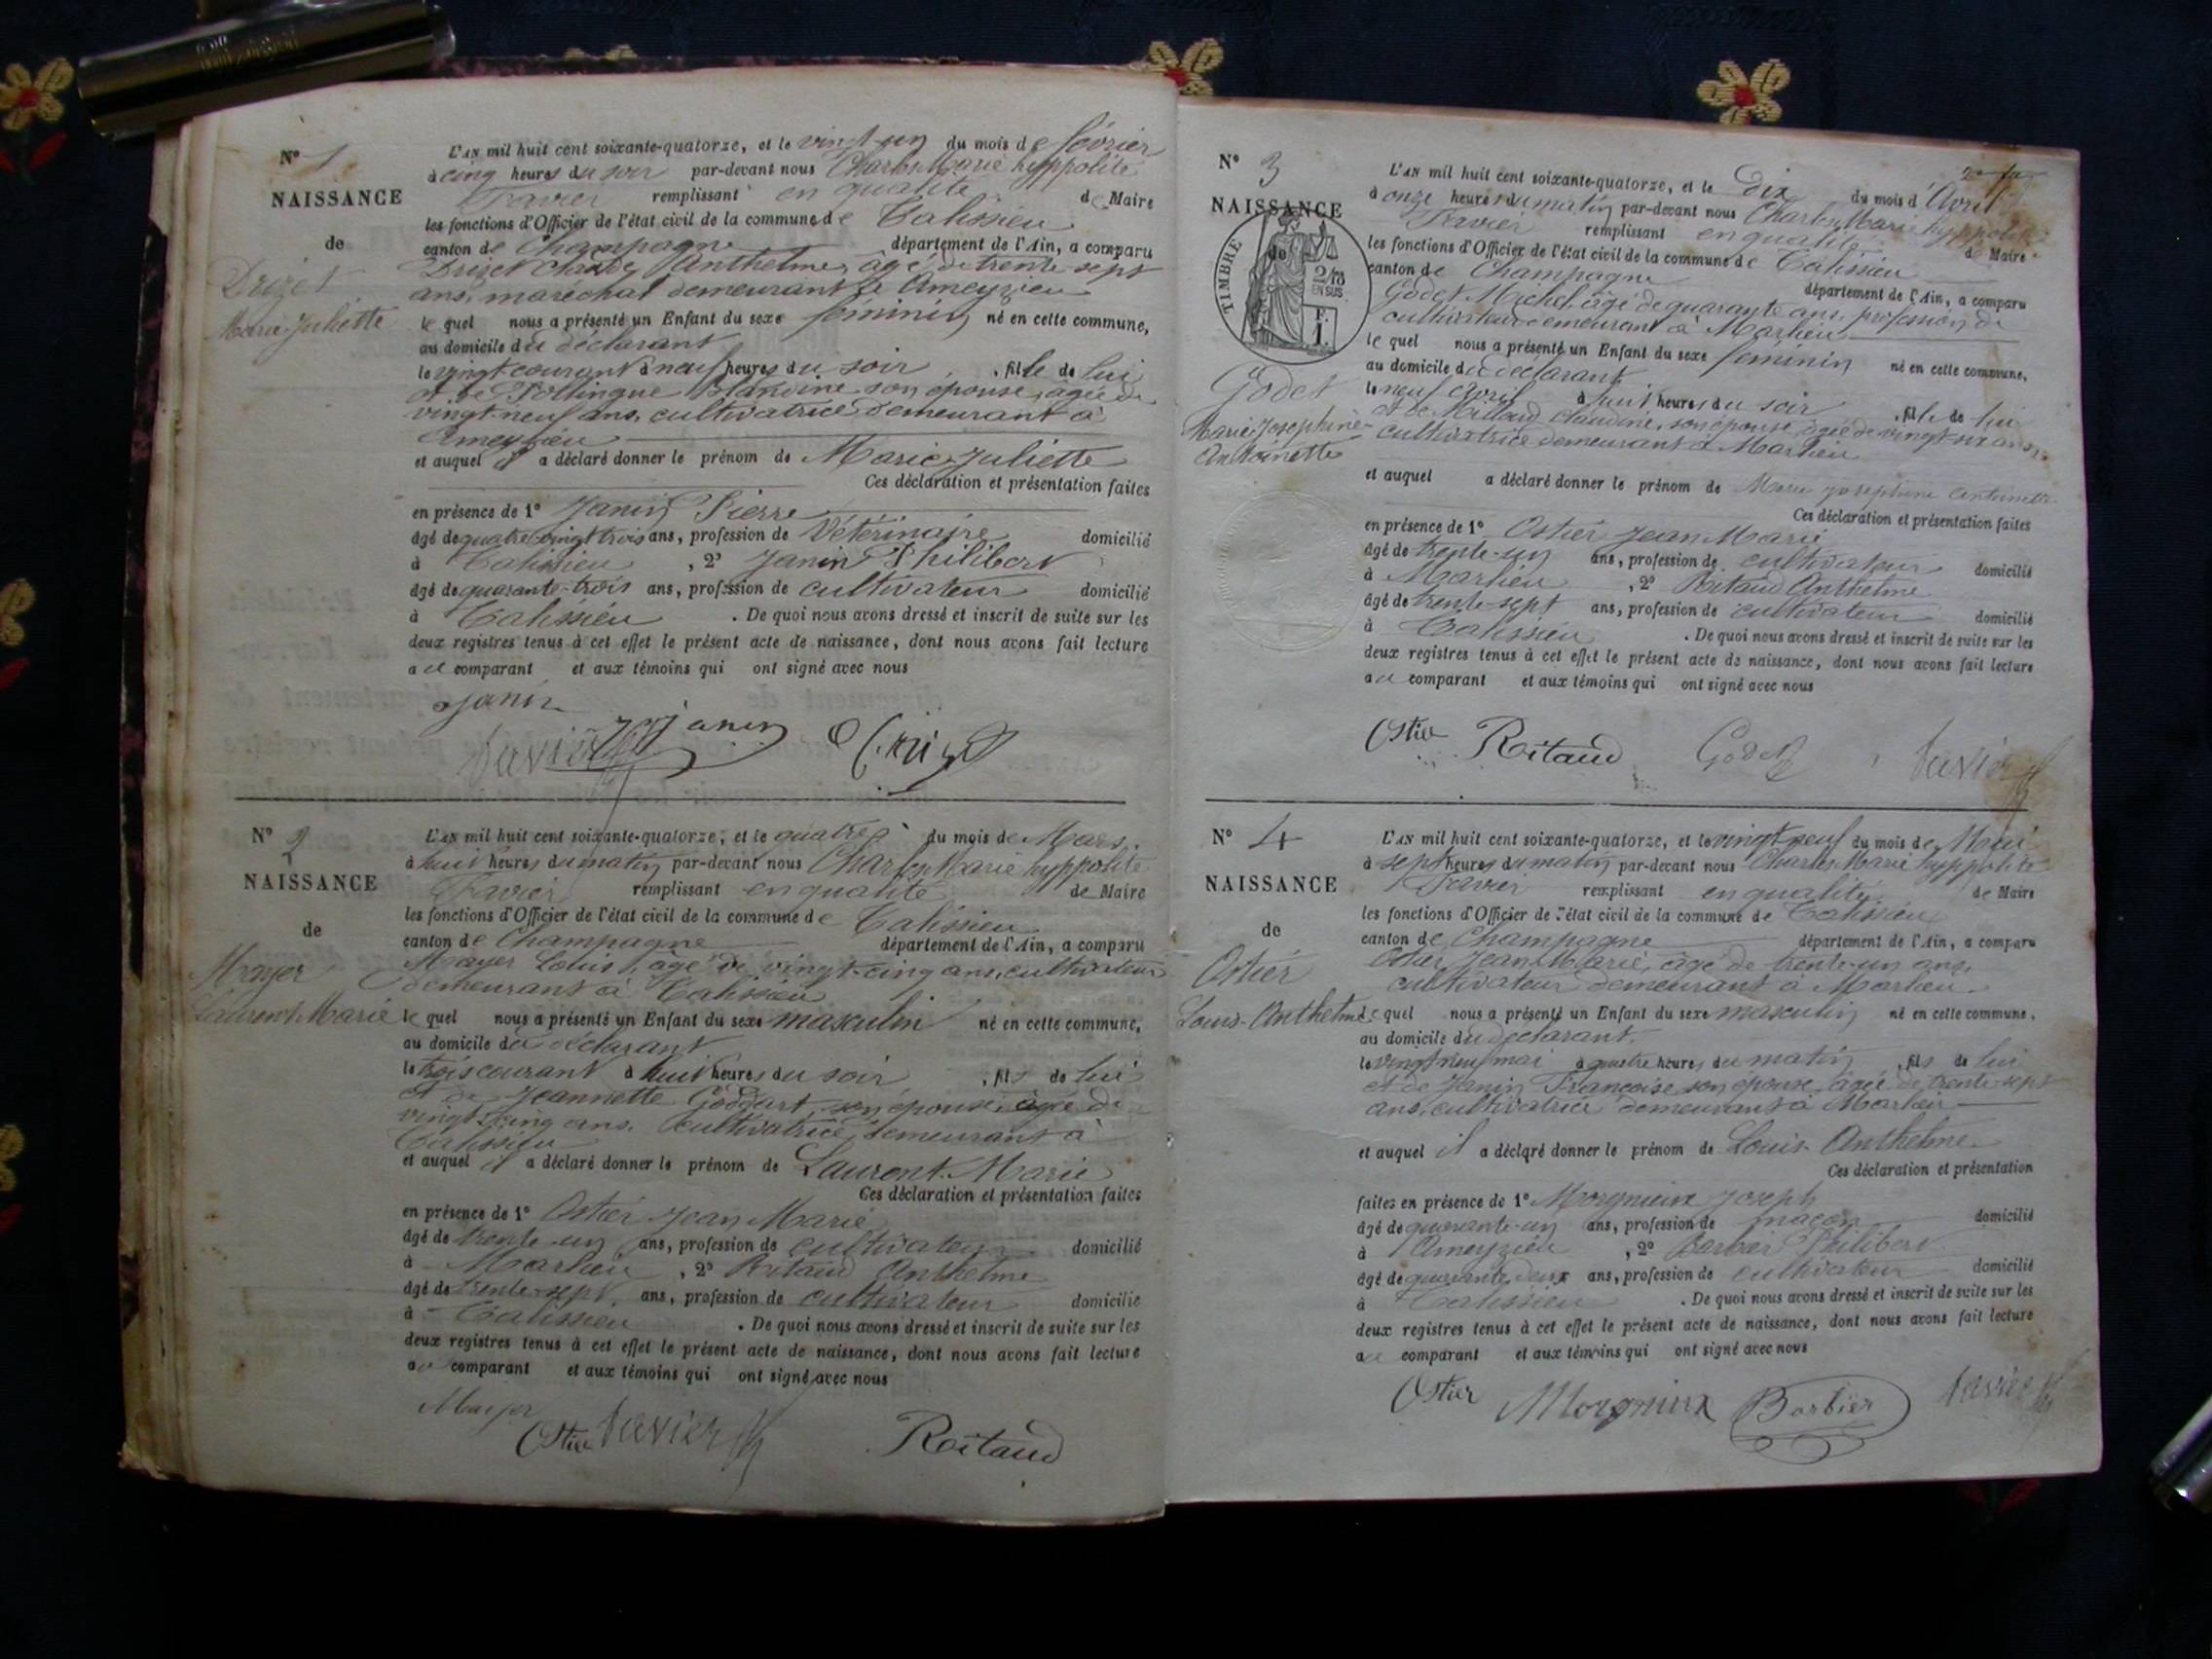 N° 1
NAISSANCE
de
Drizet
Marie Juliette
L'AN mil huit cent soixante-quatorze, et le vingt-un du mois de février
à cinq heures du soir par-devant nous Charles Marie hyppolite
Favier remplissant en qualité de Maire
les fonctions d'Officier de l'état civil de la commune de Talissieu
canton de Champagne département de l'Ain, a comparu
Drizet Claude Anthelme, âgé de trente sept
ans, maréchal demeurant à Ameyzieu
le quel nous a présenté un Enfant du sexe féminin né en cette commune,
au domicile du déclarant
le vingt courant à neuf heures du soir, fille de lui
et de Pollingue Blandine son épouse, âgée de
vingt-neuf ans, cultivatrice demeurant à
Ameyzieu
et auquel il a déclaré donner le prénom de Marie-Juliette
Ces déclaration et présentation faites
en présence de 1° Janin Pierre
âgé de quatre-vingt trois ans, profession de Vétérinaire domicilié
à Talissieu, 2° Janin Philibert
âgé de quarante-trois ans, profession de cultivateur domicilié
à Talissieu. De quoi nous avons dressé et inscrit de suite sur les
deux registres tenus à cet effet le présent acte de naissance, dont nous avons fait lecture
au comparant et aux témoins qui ont signé avec nous
Janin
favier janin Drizet
N° 2
NAISSANCE
de
Mayer
Laurent Marie
L'AN mil huit cent soixante-quatorze, et le quatre du mois de Mars
à huit heures du matin par-devant nous Charles Marie hyppolite
Favier remplissant en qualité de Maire
les fonctions d'Officier de l'état civil de la commune de Talissieu
canton de Champagne département de l'Ain, a comparu
Mayer Louis, âgé de vingt-cinq ans, cultivateur
demeurant à Talissieu
le quel nous a présenté un Enfant du sexe masculin né en cette commune,
au domicile du déclarant
le trois courant à huit heures du soir, fils de lui
et de Jeannette Goddart, son épouse, âgée de
vingt-cinq ans, cultivatrice, demeurant à
Talissieu
et auquel il a déclaré donner le prénom de Laurent-Marie
Ces déclaration et présentation faites
en présence de 1° Ostier Jean Marie
âgé de trente-un ans, profession de cultivateur domicilié
à Marlieu, 2° Roitaud Anthelme
âgé de trente-sept ans, profession de cultivateur domicilié
à Talissieu. De quoi nous avons dressé et inscrit de suite sur les
deux registres tenus à cet effet le présent acte de naissance, dont nous avons fait lecture
au comparant et aux témoins qui ont signé avec nous
Mayer
Ostier favier Roitaud
N° 3
NAISSANCE
de
TIMBRE
2/10
EN SUS
F.
1.
Godet
Marie-Josephine-
Antoinette
L'AN mil huit cent soixante-quatorze, et le dix du mois d'Avril
à onze heures du matin par-devant nous Charles Marie hyppolite
Favier remplissant en qualité de Maire
les fonctions d'Officier de l'état civil de la commune de Talissieu
canton de Champagne département de l'Ain, a comparu
Godet Michel, âgé de quarante ans, profession de
cultivateur demeurant à Marlieu
le quel nous a présenté un Enfant du sexe féminin né en cette commune,
au domicile du déclarant
le neuf Avril à huit heures du soir, fille de lui
et de Maillard Claudine, son épouse, âgée de vingt-six ans
cultivatrice demeurant à Marlieu
et auquel a déclaré donner le prénom de Marie josephine antoinette
Ces déclaration et présentation faites
en présence de 1° Ostier Jean Marie
âgé de trente-un ans, profession de cultivateur domicilié
à Marlieu, 2° Roitaud Anthelme
âgé de trente-sept ans, profession de cultivateur domicilié
à Talissieu. De quoi nous avons dressé et inscrit de suite sur les
deux registres tenus à cet effet le présent acte de naissance, dont nous avons fait lecture
au comparant et aux témoins qui ont signé avec nous
Ostier Roitaud Godet favier
N° 4
NAISSANCE
de
Ostier
Louis-Anthelme
L'AN mil huit cent soixante-quatorze, et le vingt neuf du mois de Mai
à sept heures du matin par-devant nous Charles Marie hyppolite
Favier remplissant en qualité de Maire
les fonctions d'Officier de l'état civil de la commune de Talissieu
canton de Champagne département de l'Ain, a comparu
Ostier Jean Marie, âgé de trente-un ans,
cultivateur demeurant à Marlieu.
le quel nous a présenté un Enfant du sexe masculin né en cette commune,
au domicile du déclarant.
le vingt neuf mai à quatre heures du matin, fils de lui
et de Janin Françoise son épouse, âgée de trente-sept
ans, cultivatrice demeurant à Marlieu
et auquel il a déclaré donner le prénom de Louis-Anthelme
Ces déclaration et présentation
faites en présence de 1° Morgnieux Joseph
âgé de quarante-un ans, profession de maçon domicilié
à Ameyzieu, 2° Barbier Philibert
âgé de quarante deux ans, profession de cultivateur domicilié
à Talissieu. De quoi nous avons dressé et inscrit de suite sur les
deux registres tenus à cet effet le présent acte de naissance, dont nous avons fait lecture
au comparant et aux témoins qui ont signé avec nous
Ostier Morgnieux Barbier favier